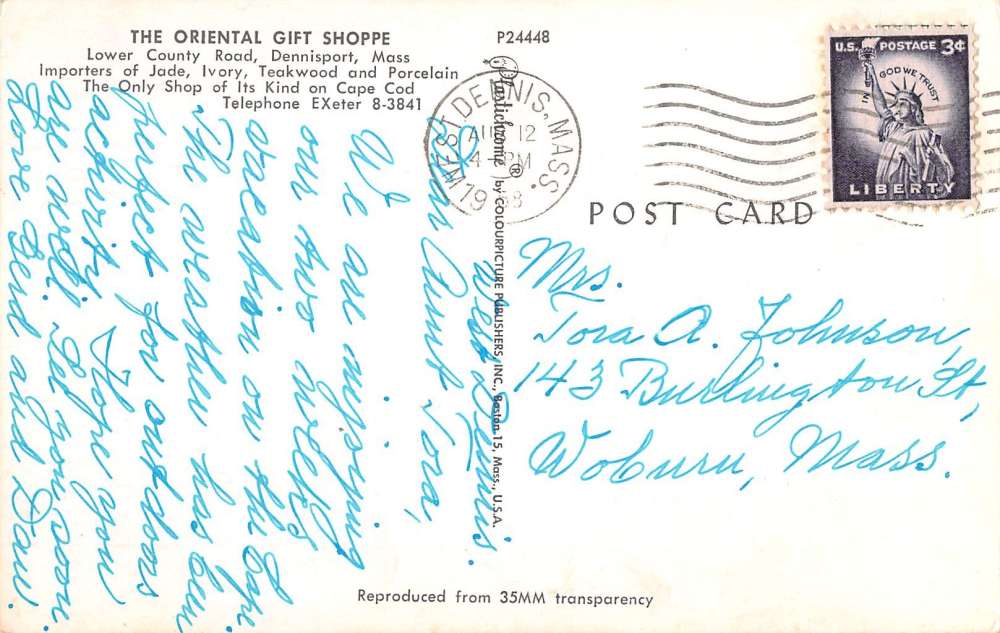 THE ORIENTAL GIFT SHOPPE
Lower County Road, Dennisport, Mass
Importers of Jade, Ivory, Teakwood and Porcelain
The Only Shop of Its Kind on Cape Cod
Telephone EXeter 8-3841
P24448
Plastichrome® by COLOURPICTURE PUBLISHERS, INC., Boston 15, Mass., U.S.A.
WEST DENNIS, MASS.
AUG 12
4 PM
1958
U.S. POSTAGE 3¢
IN GOD WE TRUST
LIBERTY
POST CARD
West Dennis.
Dear Aunt Tora,
We are enjoying
our two weeks
vacation on the Cape.
The weather has been
perfect for outdoors
activity. Hope you
are well. See you soon.
Love Gerd and Dan.
Mrs.
Tora A. Johnson,
143 Burlington St,
Woburn, Mass.
Reproduced from 35MM transparency